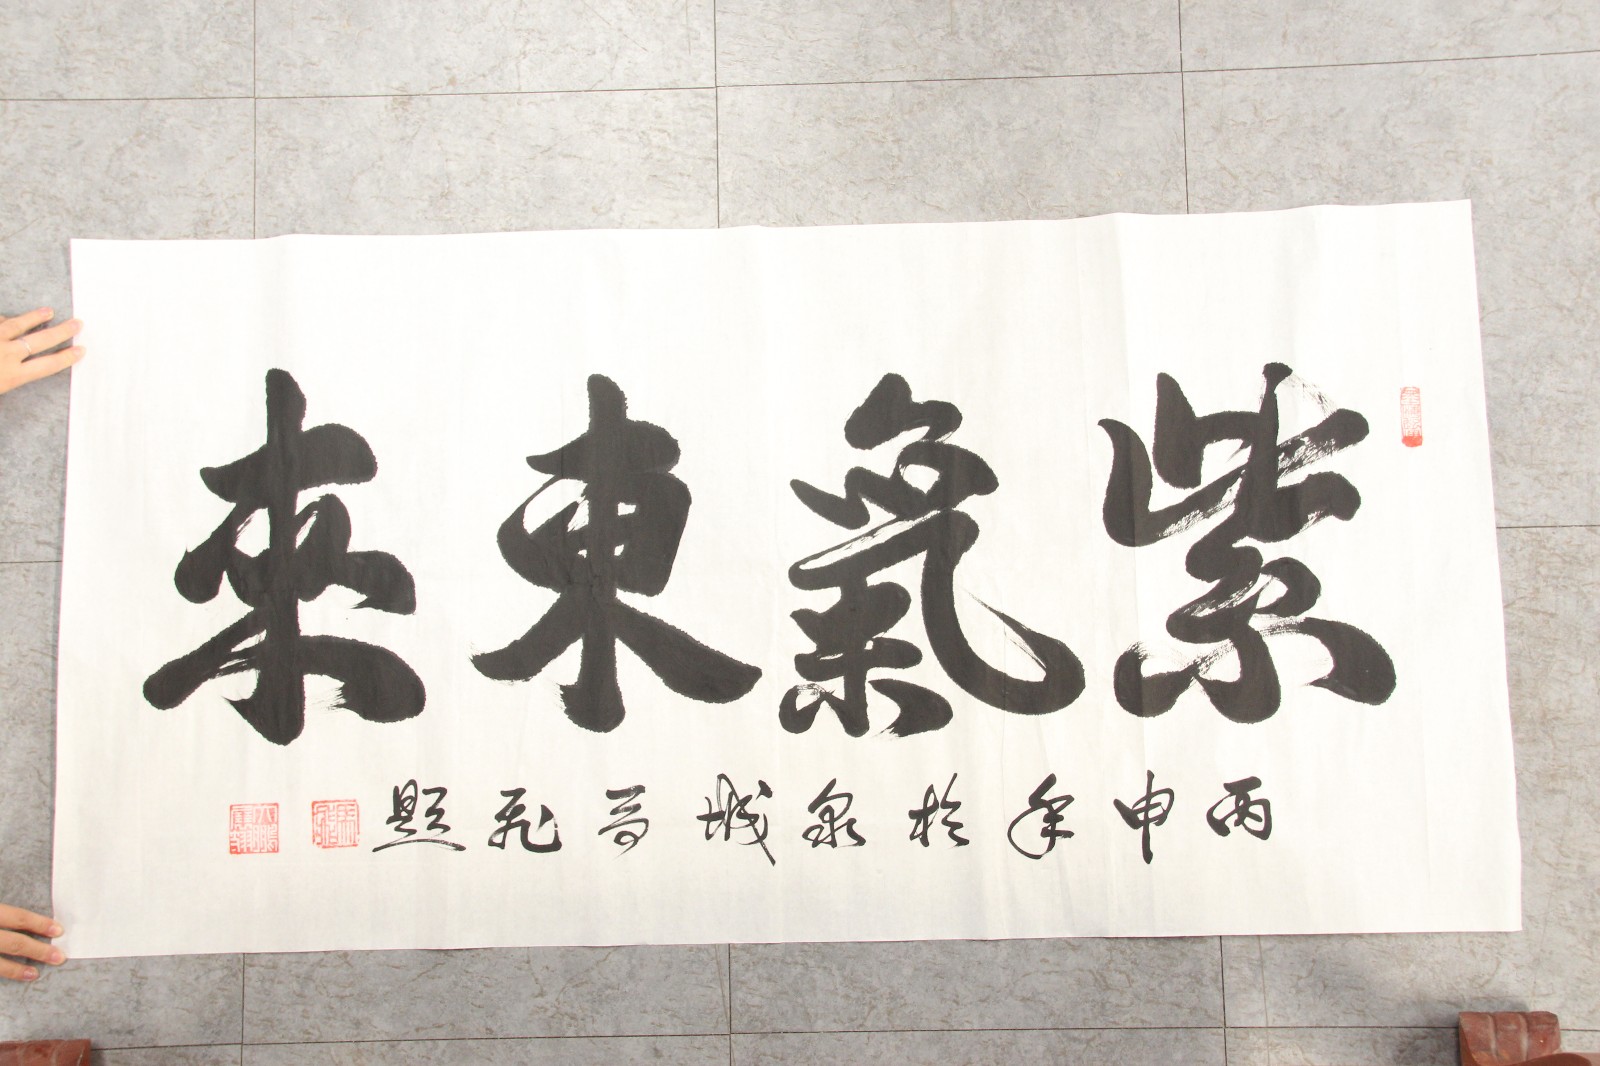 紫氣東來
丙申年於泉城晉飛題